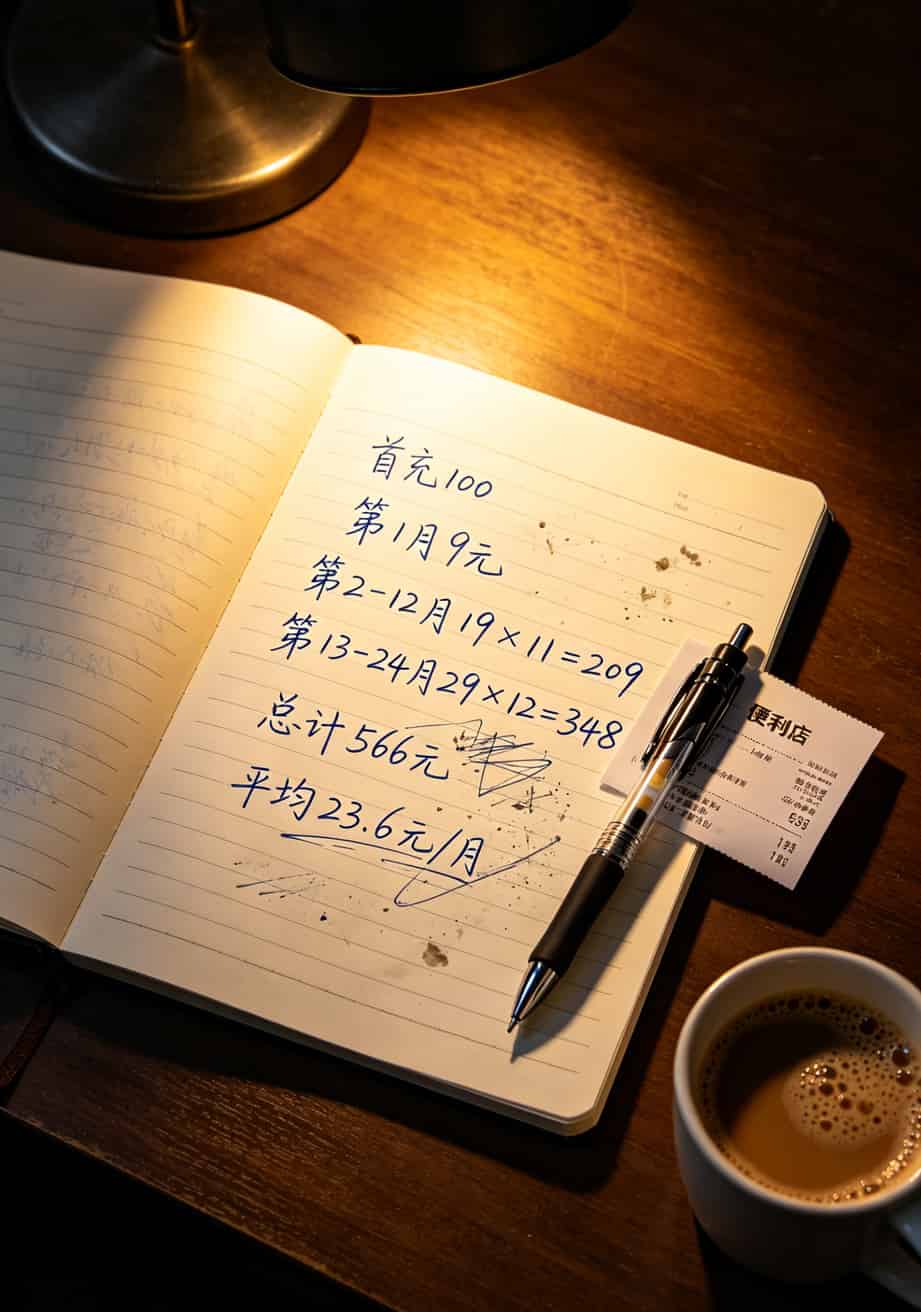 首充100
第1月9元
第2-12月19×11=209
第13-24月29×12=348
总计566元
平均23.6元/月
便利店